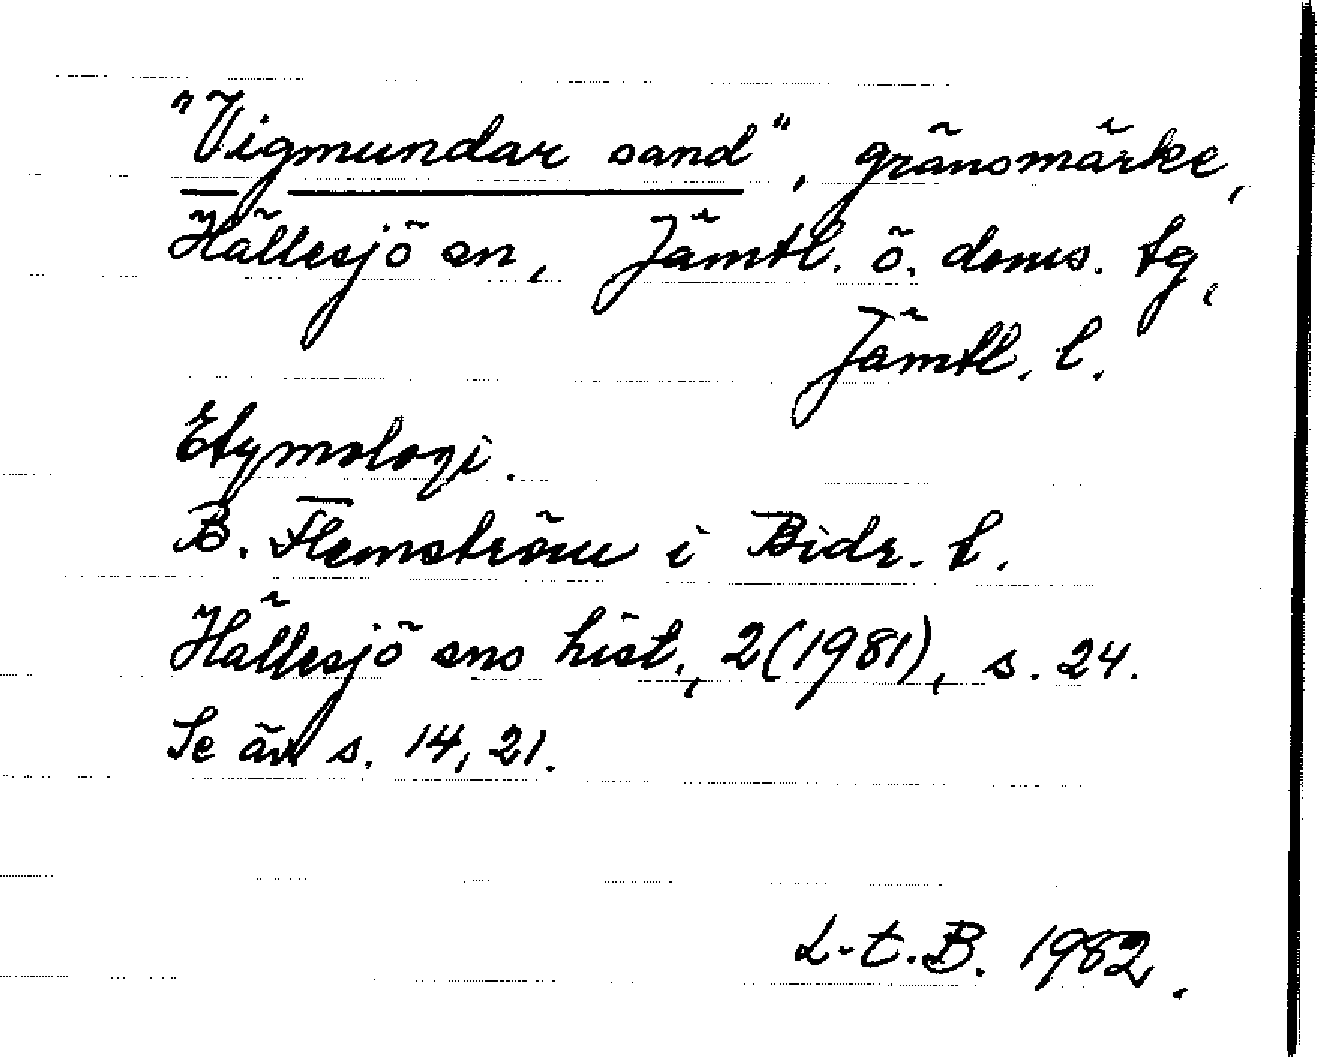 "Vigmundar sand", gränsmärke,
Hällesjö sn, Jämtl. ö. doms. tg,
Jämtl. l.
Etymologi.
B. Flemström i Bidr. t.
Hällesjö sns hist., 2(1981), s. 24.
Se äv s. 14, 21.
L-t.B. 1982.